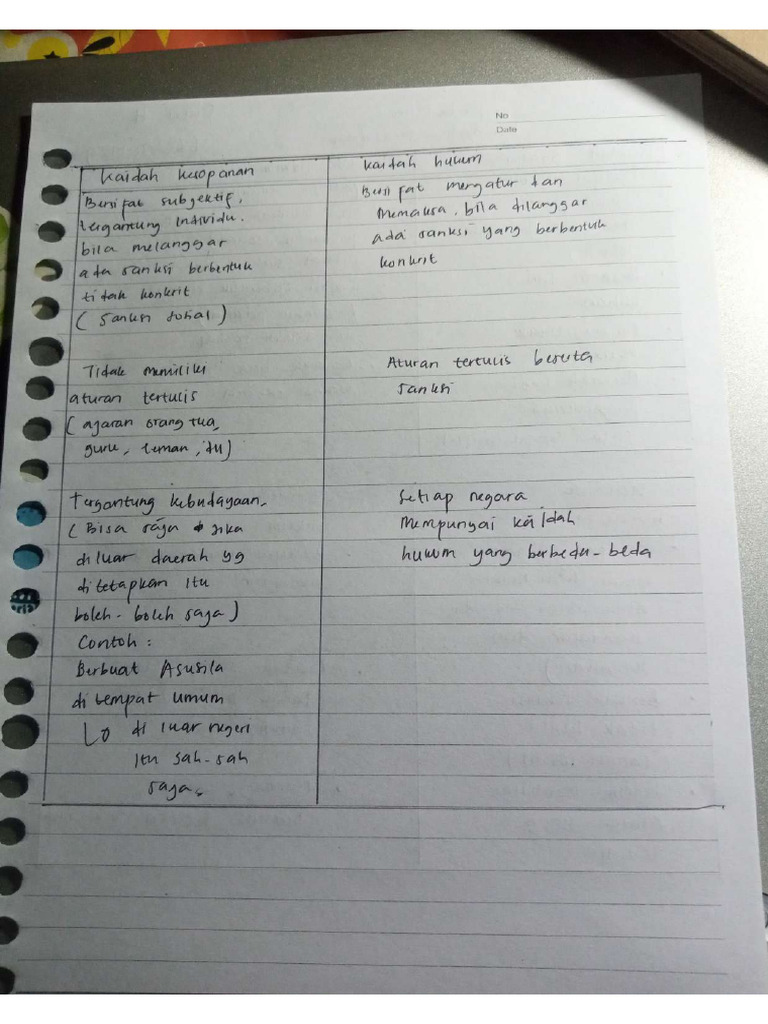 No
Date
Kaidah kesopanan
Bersifat subjektif,
tergantung individu.
bila melanggar
ada sanksi berbentuk
tidak konkrit
(sanksi sosial)
Tidak memiliki
aturan tertulis
(ajaran orang tua,
guru, teman, dll)
Tergantung kebudayaan.
(Bisa saja jika
diluar daerah yg
ditetapkan itu
boleh-boleh saja)
Contoh:
Berbuat Asusila
di tempat umum
di luar negeri
itu sah-sah
saja.
Kaidah hukum
Bersifat mengatur dan
Memaksa, bila dilanggar
ada sanksi yang berbentuk
konkrit
Aturan tertulis beserta
sanksi
Setiap negara
Mempunyai kaidah
hukum yang berbeda-beda